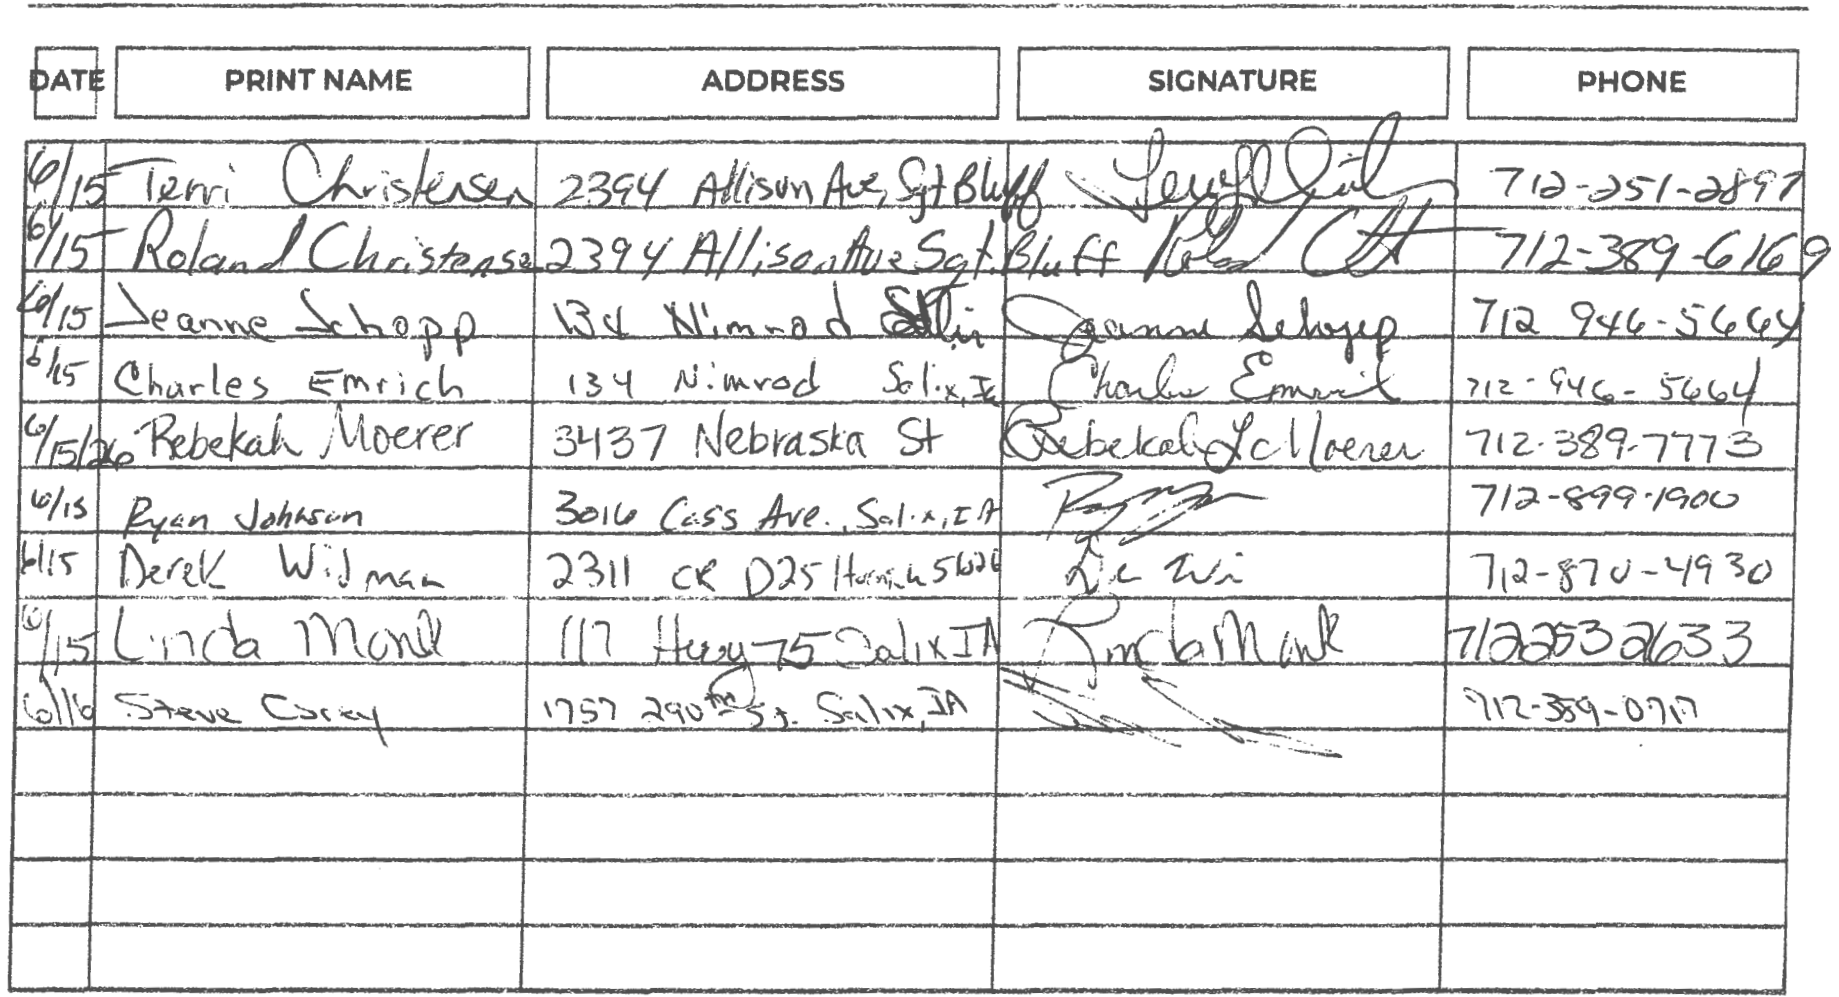 DATE PRINT NAME ADDRESS SIGNATURE PHONE
6/15 Terri Christensen 2394 Allison Ave, Sgt Bluff 712-251-2897
6/15 Roland Christensen 2394 Allison Ave Sgt. Bluff 712-389-6169
6/15 Jeanne Schopp 134 Nimrod Jeanne Schopp 712 946-5664
6/15 Charles Emrich 134 Nimrod Salix, Ia Charles Emrich 712-946-5664
6/15/26 Rebekah Moerer 3437 Nebraska St Rebekah Moerer 712-389-7773
6/15 Ryan Johnson 3016 Cass Ave., Salix, IA 712-899-1900
6/15 Derek Widman 2311 CR D25 712-870-4930
6/15 Linda Monk 117 Hwy 75 Salix IA Linda Monk 712 253 2633
6/16 Steve Corey 1757 290th St. Salix, IA 712-389-0717